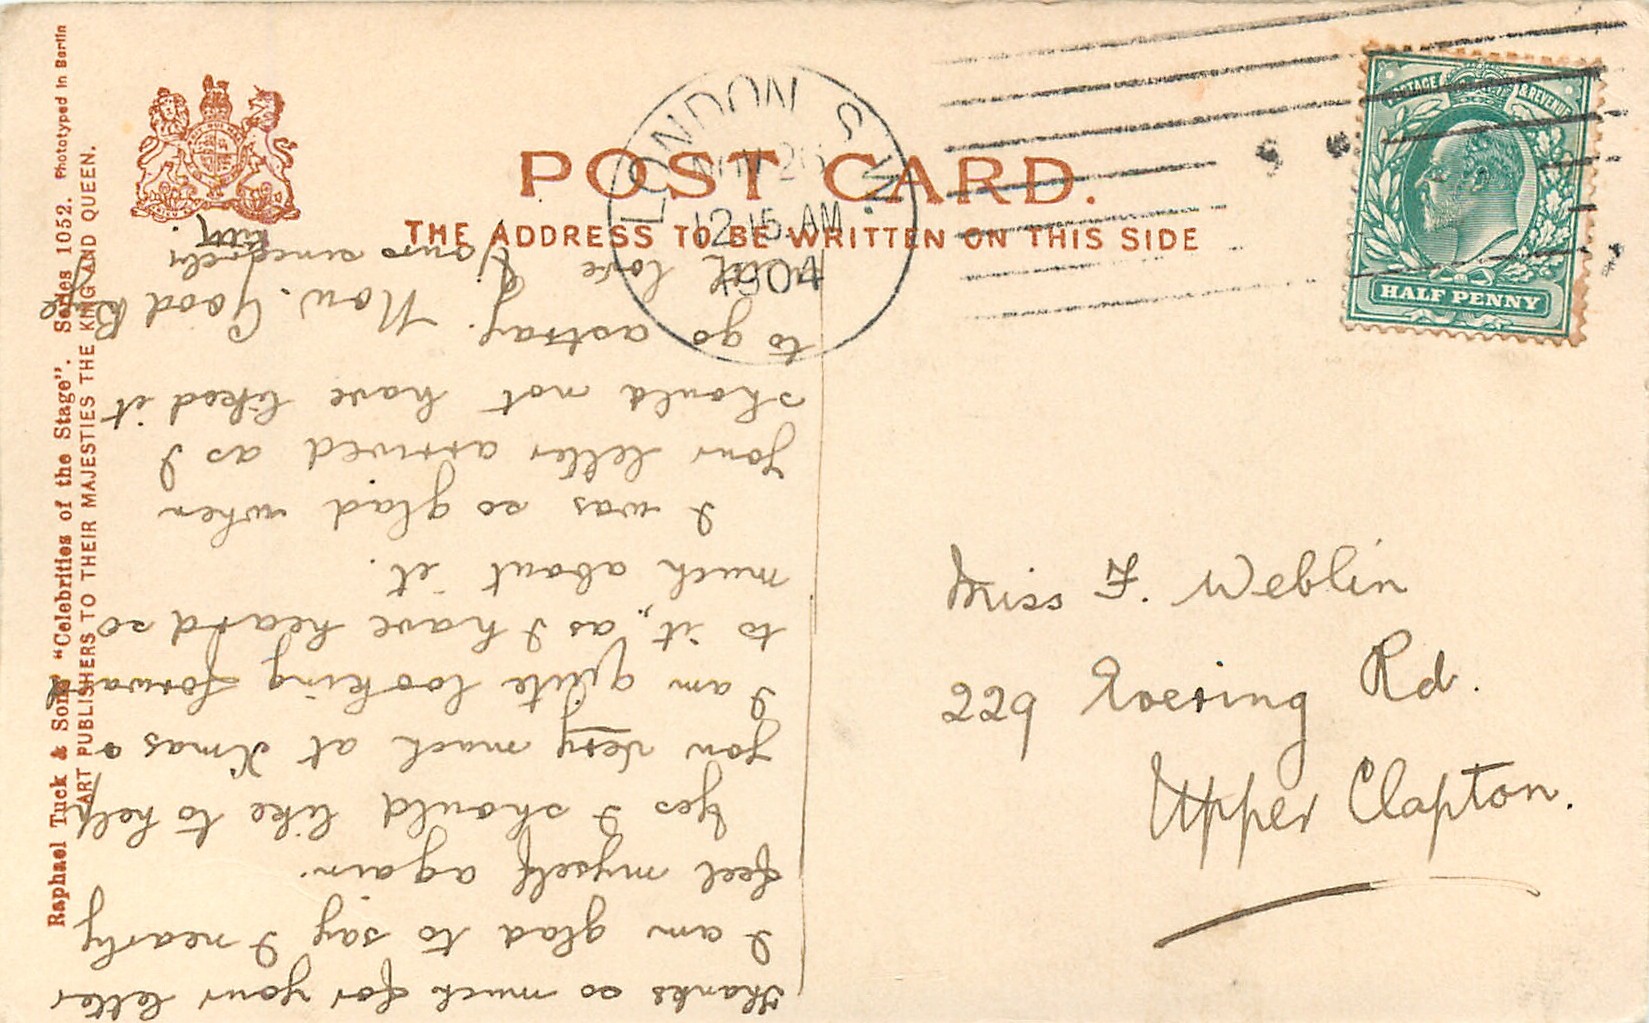 POST CARD.
THE ADDRESS TO BE WRITTEN ON THIS SIDE
LONDON S.W.
12.15 AM
1904
POSTAGE & REVENUE
HALF PENNY
Raphael Tuck & Sons' "Celebrities of the Stage". Series 1052. Phototyped in Berlin
ART PUBLISHERS TO THEIR MAJESTIES THE KING AND QUEEN.
Miss F. Weblin
229 Evering Rd.
Upper Clapton.
Thanks so much for your letter
I am glad to say I nearly
feel myself again.
Yes I should like to help
you very much at Xmas.
I am quite looking forward
to it, as I have heard so
much about it.
I was so glad when
your letter arrived as I
should not have liked it
to go astray. Now. Good Bye
love Yours sincerely